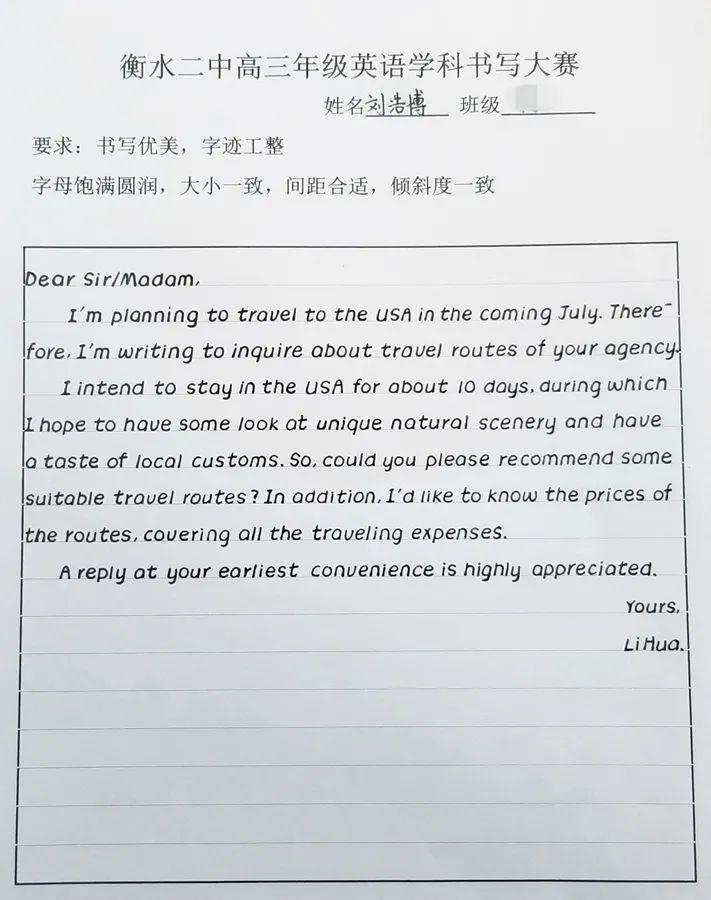 衡水二中高三年级英语学科书写大赛
姓名刘浩博 班级
要求：书写优美，字迹工整
字母饱满圆润，大小一致，间距合适，倾斜度一致
Dear Sir/Madam,
I'm planning to travel to the USA in the coming July. There-
fore, I'm writing to inquire about travel routes of your agency.
I intend to stay in the USA for about 10 days, during which
I hope to have some look at unique natural scenery and have
a taste of local customs. So, could you please recommend some
suitable travel routes? In addition, I'd like to know the prices of
the routes, covering all the traveling expenses.
A reply at your earliest convenience is highly appreciated.
Yours,
Li Hua.